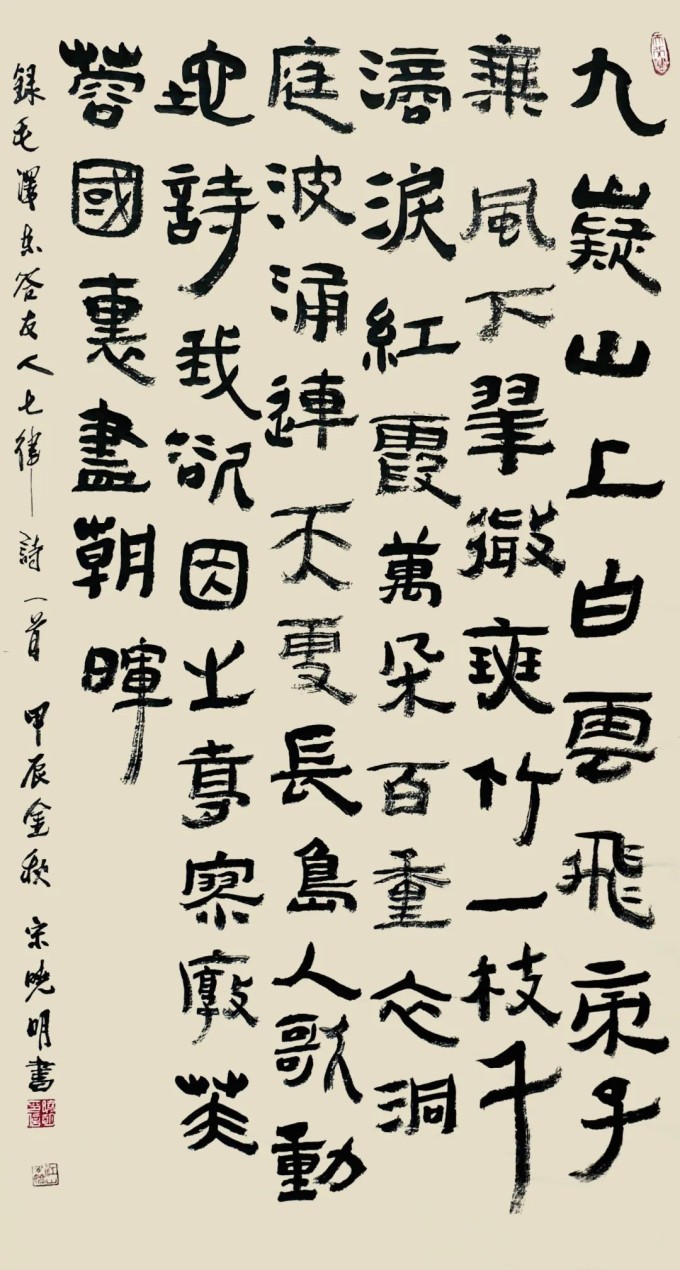 九嶷山上白雲飛帝子
乘風下翠微斑竹一枝千
滴淚紅霞萬朵百重衣洞
庭波涌連天雪長島人歌動
地詩我欲因之夢寥廓芙
蓉國裏盡朝暉
錄毛澤東答友人七律詩一首 甲辰金秋 宋曉明書